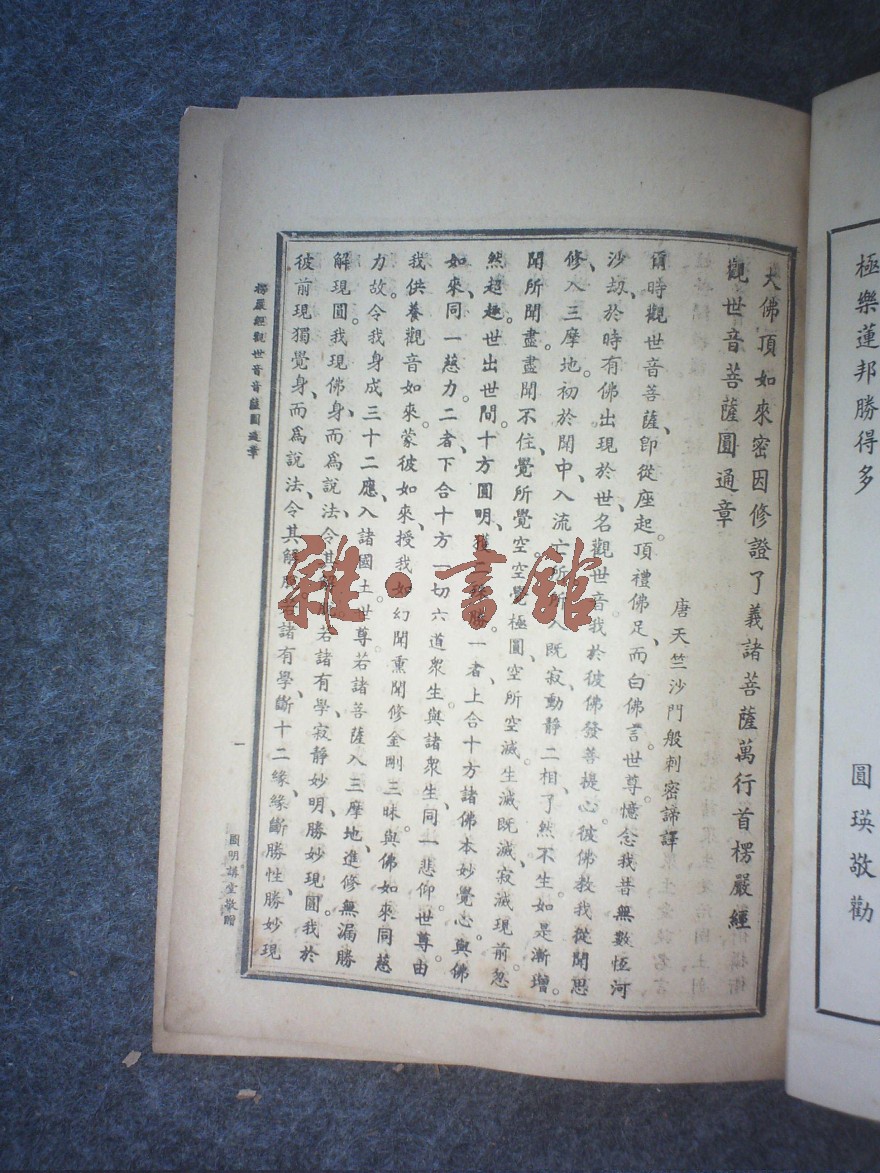 極樂蓮邦勝得多
圓瑛敬勸
大佛頂如來密因修證了義諸菩薩萬行首楞嚴經
觀世音菩薩圓通章
唐天竺沙門般刺密諦譯
爾時觀世音菩薩、卽從座起、頂禮佛足、而白佛言。世尊、憶念我昔無數恆河
沙劫、於時有佛出現於世、名觀世音。我於彼佛發菩提心。彼佛教我從聞思
修、入三摩地。初於聞中、入流亡所。所入既寂、動靜二相、了然不生。如是漸增。
聞所聞盡。盡聞不住。覺所覺空。空覺極圓。空所空滅。生滅既滅、寂滅現前。忽
然超越。世出世間。十方圓明、獲二殊勝。一者、上合十方諸佛本妙覺心、與佛
如來、同一慈力。二者、下合十方一切六道衆生、與諸衆生、同一悲仰。世尊、由
我供養觀音如來、蒙彼如來、授我如幻聞熏聞修金剛三昧。與佛如來同慈
力故、令我身成三十二應、入諸國土。世尊、若諸菩薩入三摩地、進修無漏、勝
解現圓。我現佛身、而爲說法、令其解脫。若諸有學、寂靜妙明、勝妙現圓。我於
彼前現獨覺身、而爲說法、令其解脫。若諸有學、斷十二緣、緣斷勝性、勝妙現
楞嚴經觀世音菩薩圓通章
一
圓明講堂敬贈
雜·書館